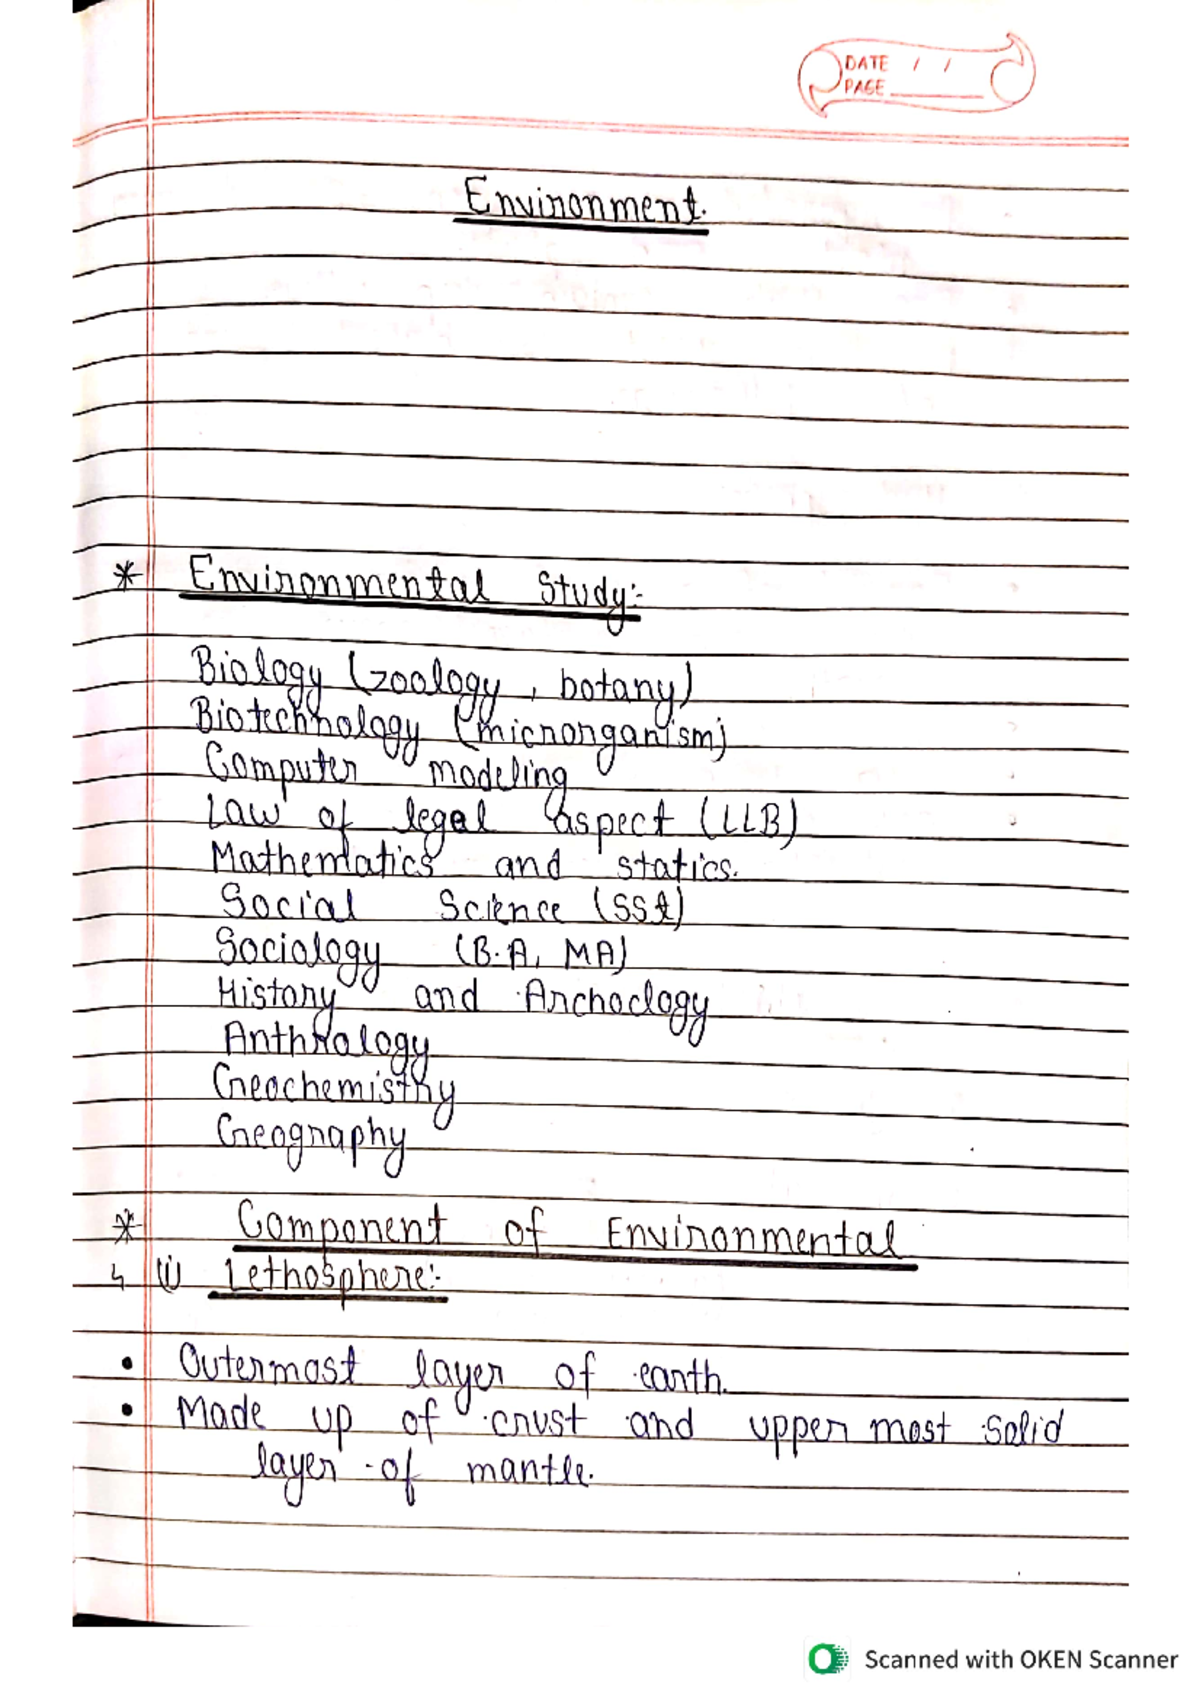 DATE / /
PAGE
Environment.
* Environmental Study:-
Biology (zoology, botany)
Biotechnology (microrganism)
Computer modeling
Law of legal aspect (LLB)
Mathematics and statics.
Social Science (SSt)
Sociology (B.A, MA)
History and Archoclogy
Anthralogy
Geochemistry
Geography
* Component of Environmental
↳ (i) Lethosphere:-
• Outermost layer of earth.
• Made up of crust and upper most solid
layer of mantle.
Scanned with OKEN Scanner